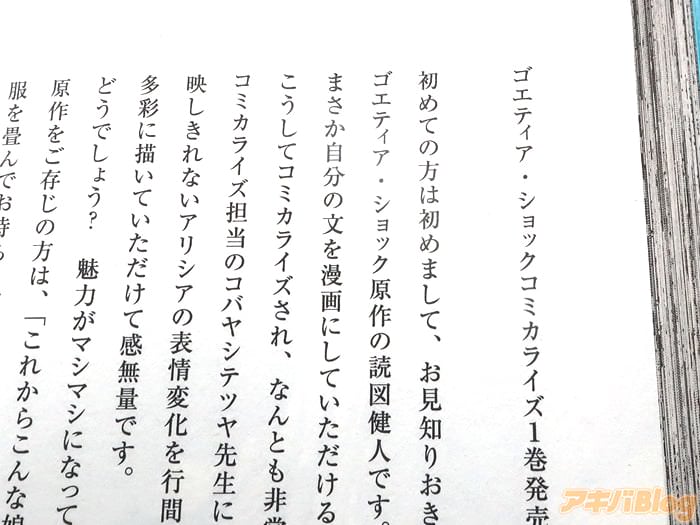 ゴエティア・ショックコミカライズ1巻発売
初めての方は初めまして、お見知りおき
ゴエティア・ショック原作の読図健人です。
まさか自分の文を漫画にしていただける
こうしてコミカライズされ、なんとも非常
コミカライズ担当のコバヤシテツヤ先生に
映しきれないアリシアの表情変化を行間
多彩に描いていただけて感無量です。
どうでしょう?　魅力がマシマシになって
原作をご存じの方は、「これからこんな娘
服を畳んでお待
アキバBlog